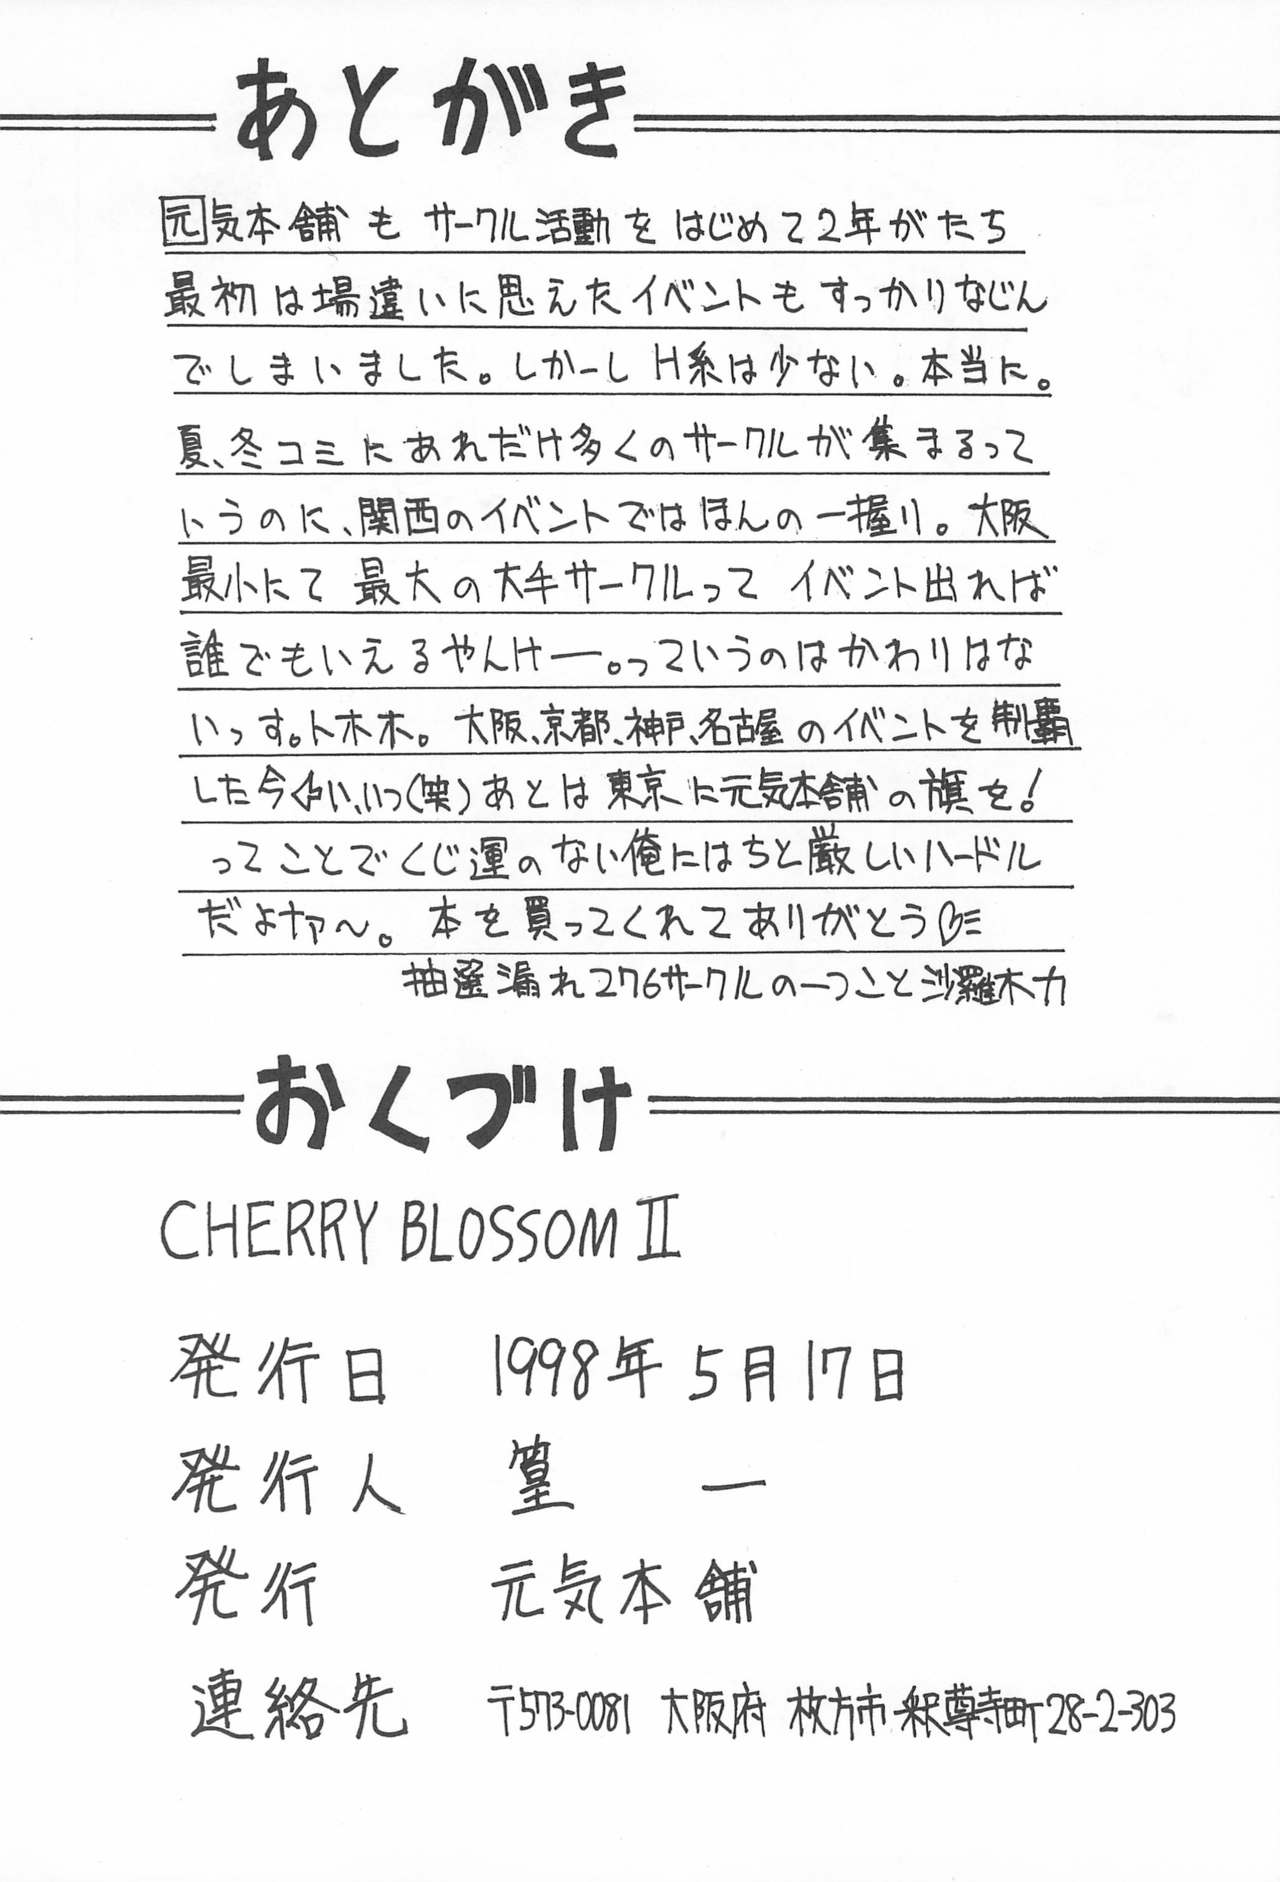 あとがき
元気本舗も サークル活動を はじめて2年がたち
最初は場違いに思えたイベントも すっかりなじん
でしまいました。しかーし H系は少ない。本当に。
夏、冬コミにあれだけ多くのサークルが集まるって
いうのに、関西のイベントではほんの一握り。大阪
最小にて 最大の大手サークルって イベント出れば
誰でもいえるやんけー。っていうのはかわりはな
いっす。トホホ。大阪、京都、神戸、名古屋のイベントを制覇
した今(笑)あとは東京に元気本舗の旗を!
ってことでくじ運のない俺にはちと厳しいハードル
だよナァ〜。本を買ってくれてありがとう♡
抽選漏れ276サークルの一つこと沙羅木力
おくづけ
CHERRY BLOSSOM II
発行日 1998年5月17日
発行人 篁 一
発行 元気本舗
連絡先 〒573-0081 大阪府 枚方市釈尊寺町28-2-303